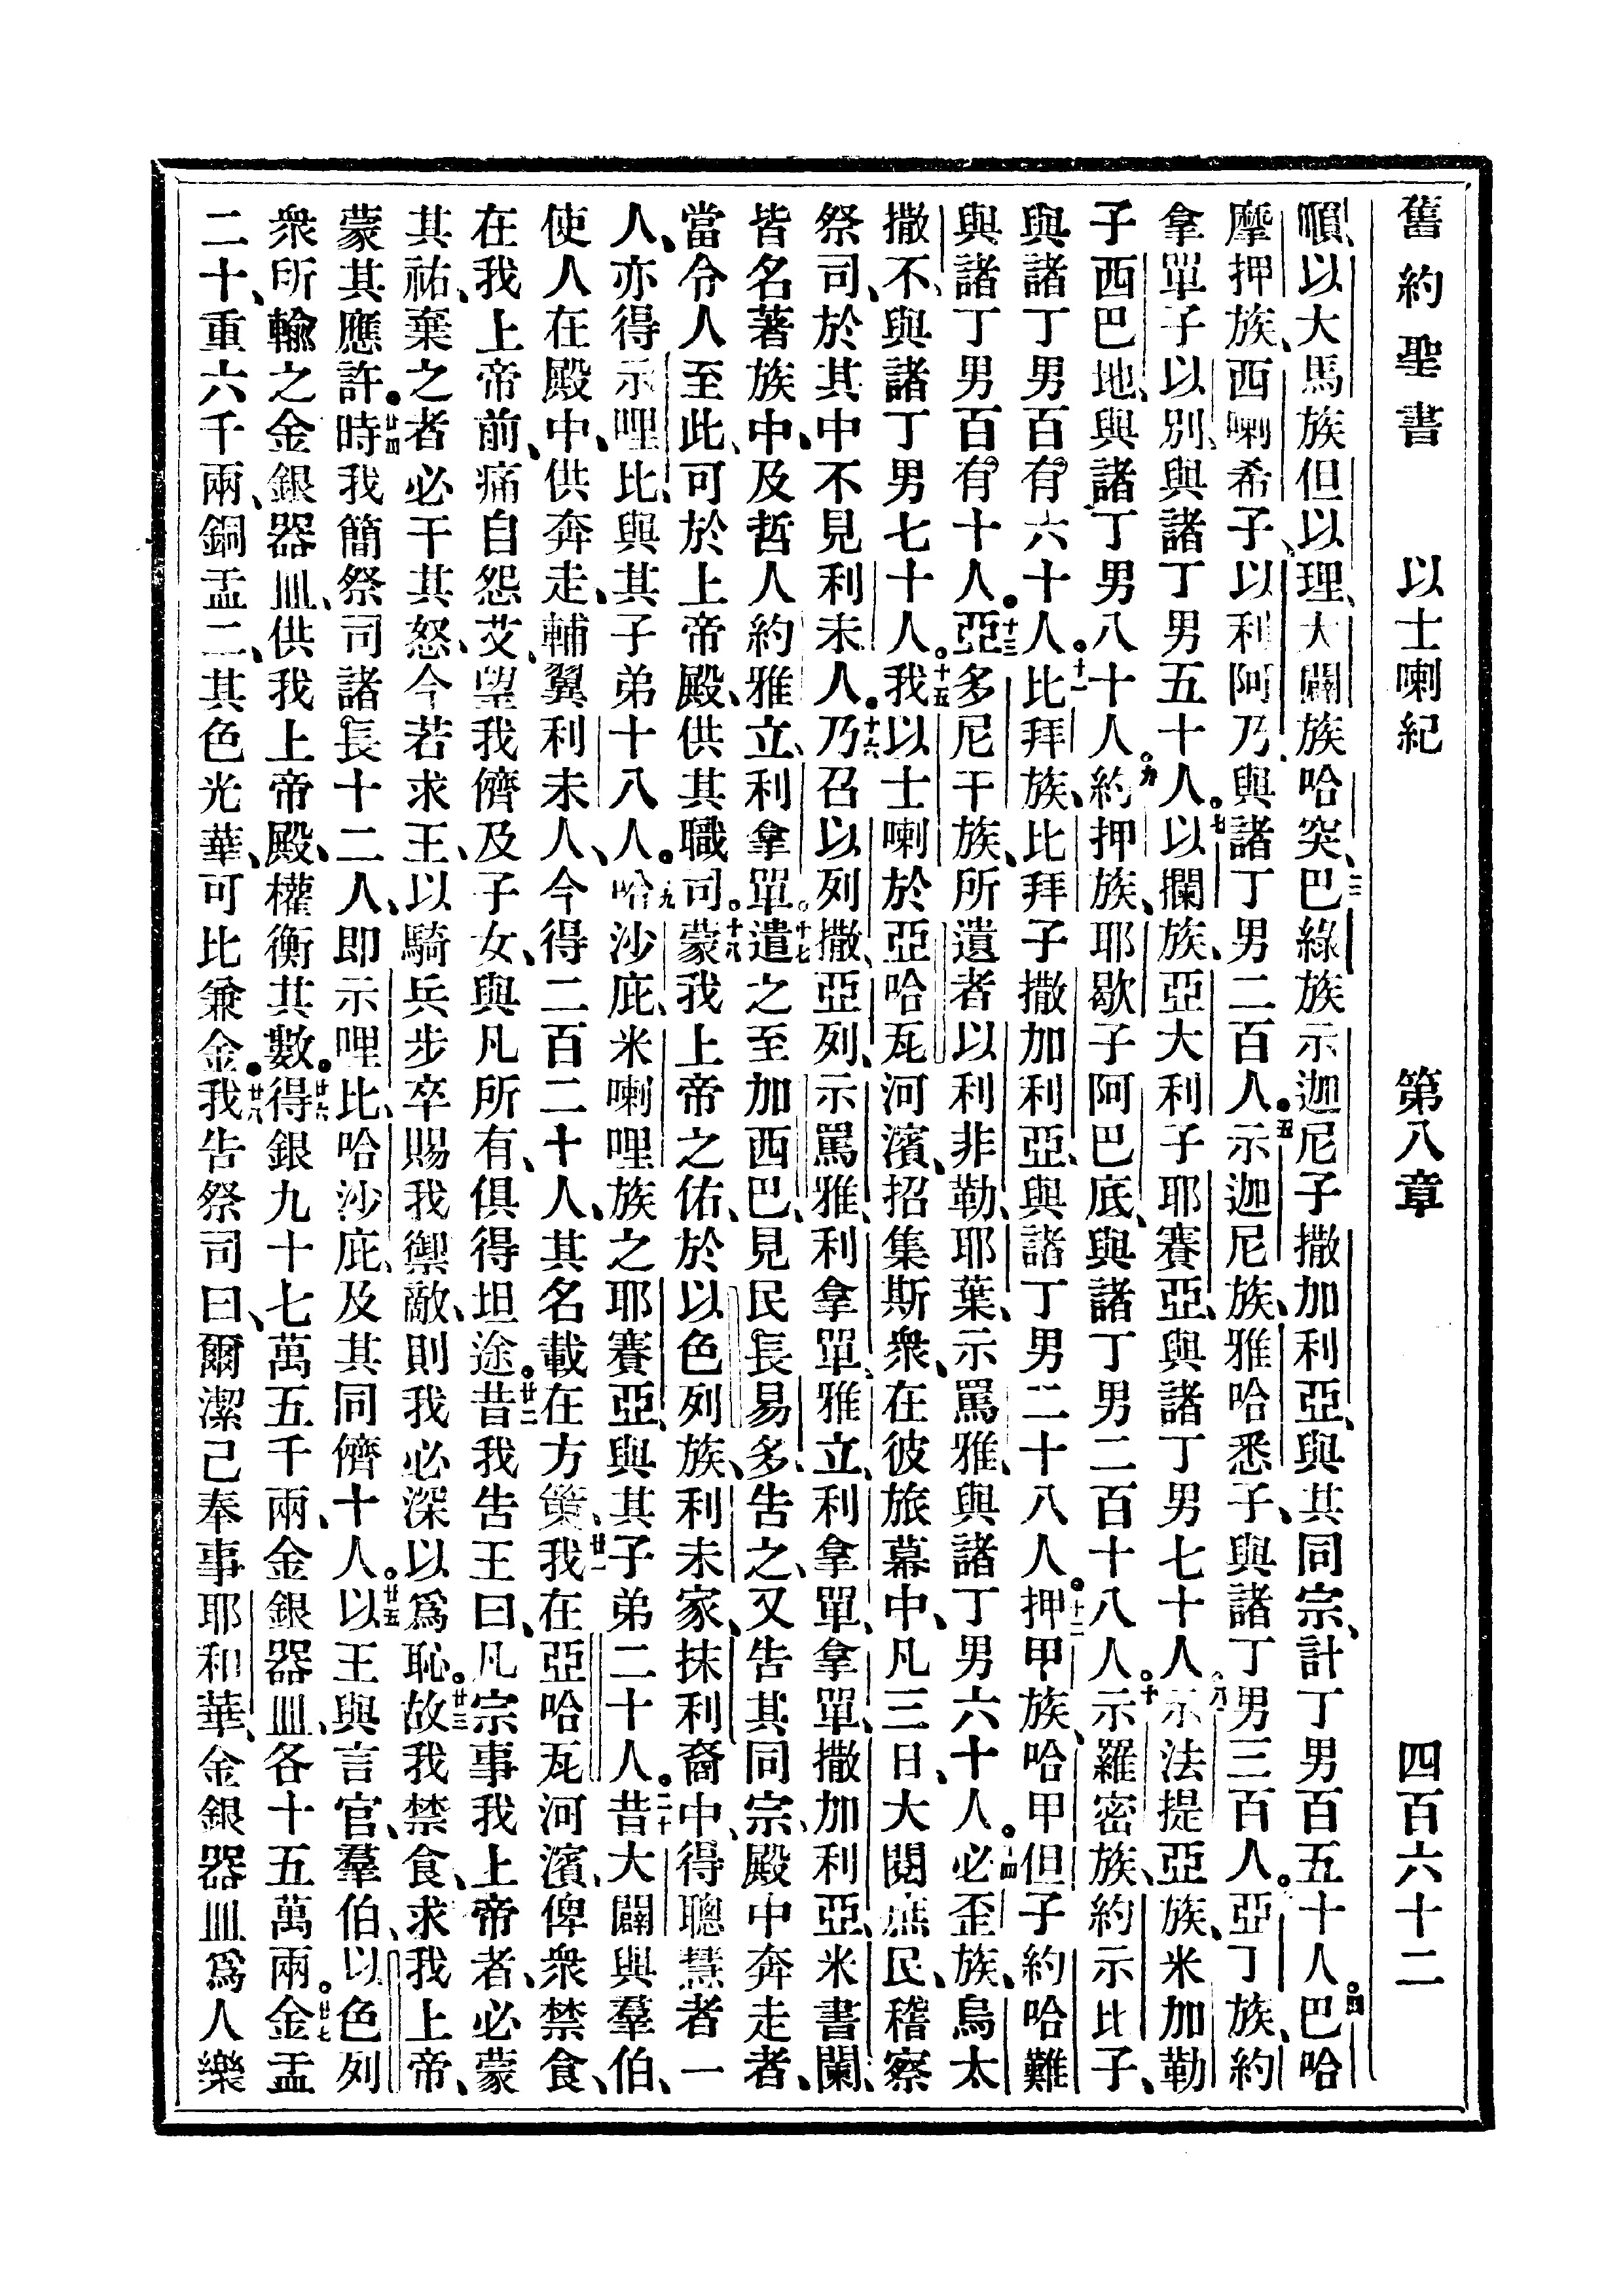 舊約聖書　以士喇紀　第八章　四百六十二
順、以大馬族但以理、大闢族哈突、巴綠族示迦尼子撒加利亞、與其同宗、計丁男百五十人。四巴哈
摩押族、西喇希子、以利阿乃、與諸丁男二百人。五示迦尼族、雅哈悉子、與諸丁男三百人。亞丁族、約
拿單子以別、與諸丁男五十人。七以攔族、亞大利子耶賽亞、與諸丁男七十人。八示法提亞族、米加勒
子西巴地、與諸丁男八十人。九約押族、耶歇子阿巴底、與諸丁男二百十八人。十示羅密族、約示比子、
與諸丁男百有六十人。十一比拜族、比拜子撒加利亞、與諸丁男二十八人。十二押甲族、哈甲但子約哈難
與諸丁男百有十人。十三亞多尼干族、所遺者以利非勒、耶葉、示罵雅、與諸丁男六十人。十四必歪族、烏太
撒不、與諸丁男七十人。十五我以士喇於亞哈瓦河濱、招集斯衆、在彼旅幕中、凡三日、大閱庶民、稽察
祭司、於其中不見利未人。十六乃召以列撒、亞列、示罵雅、利拿單、雅立、利拿單、拿單、撒加利亞、米書闌、
皆名著族中、及哲人約雅立、利拿單。十七遣之至加西巴、見民長易多、告之、又告其同宗、殿中奔走者、
當令人至此、可於上帝殿、供其職司。十八蒙我上帝之佑、於以色列族、利未家、抹利裔中、得聰慧者一
人、亦得示哩比、與其子弟十八人。十九哈沙庇、米喇哩族之耶賽亞、與其子弟二十人。二十昔大闢與羣伯、
使人在殿中、供奔走、輔翼利未人、今得二百二十人、其名載在方策、廿一我在亞哈瓦河濱、俾衆禁食、
在我上帝前、痛自怨艾、望我儕及子女、與凡所有、俱得坦途。廿二昔我告王曰、凡宗事我上帝者、必蒙
其祐、棄之者必干其怒、今若求王、以騎兵步卒賜我禦敵、則我必深以爲恥。廿三故我禁食、求我上帝、
蒙其應許。廿四時我簡祭司諸長十二人、即示哩比、哈沙庇、及其同儕十人。廿五以王與言官、羣伯、以色列
衆所輸之金銀器皿、供我上帝殿、權衡其數。廿六得銀九十七萬五千兩、金銀器皿、各十五萬兩。廿七金盂
二十、重六千兩、銅盂二、其色光華、可比兼金。廿八我告祭司曰、爾潔己奉事耶和華、金銀器皿爲人樂